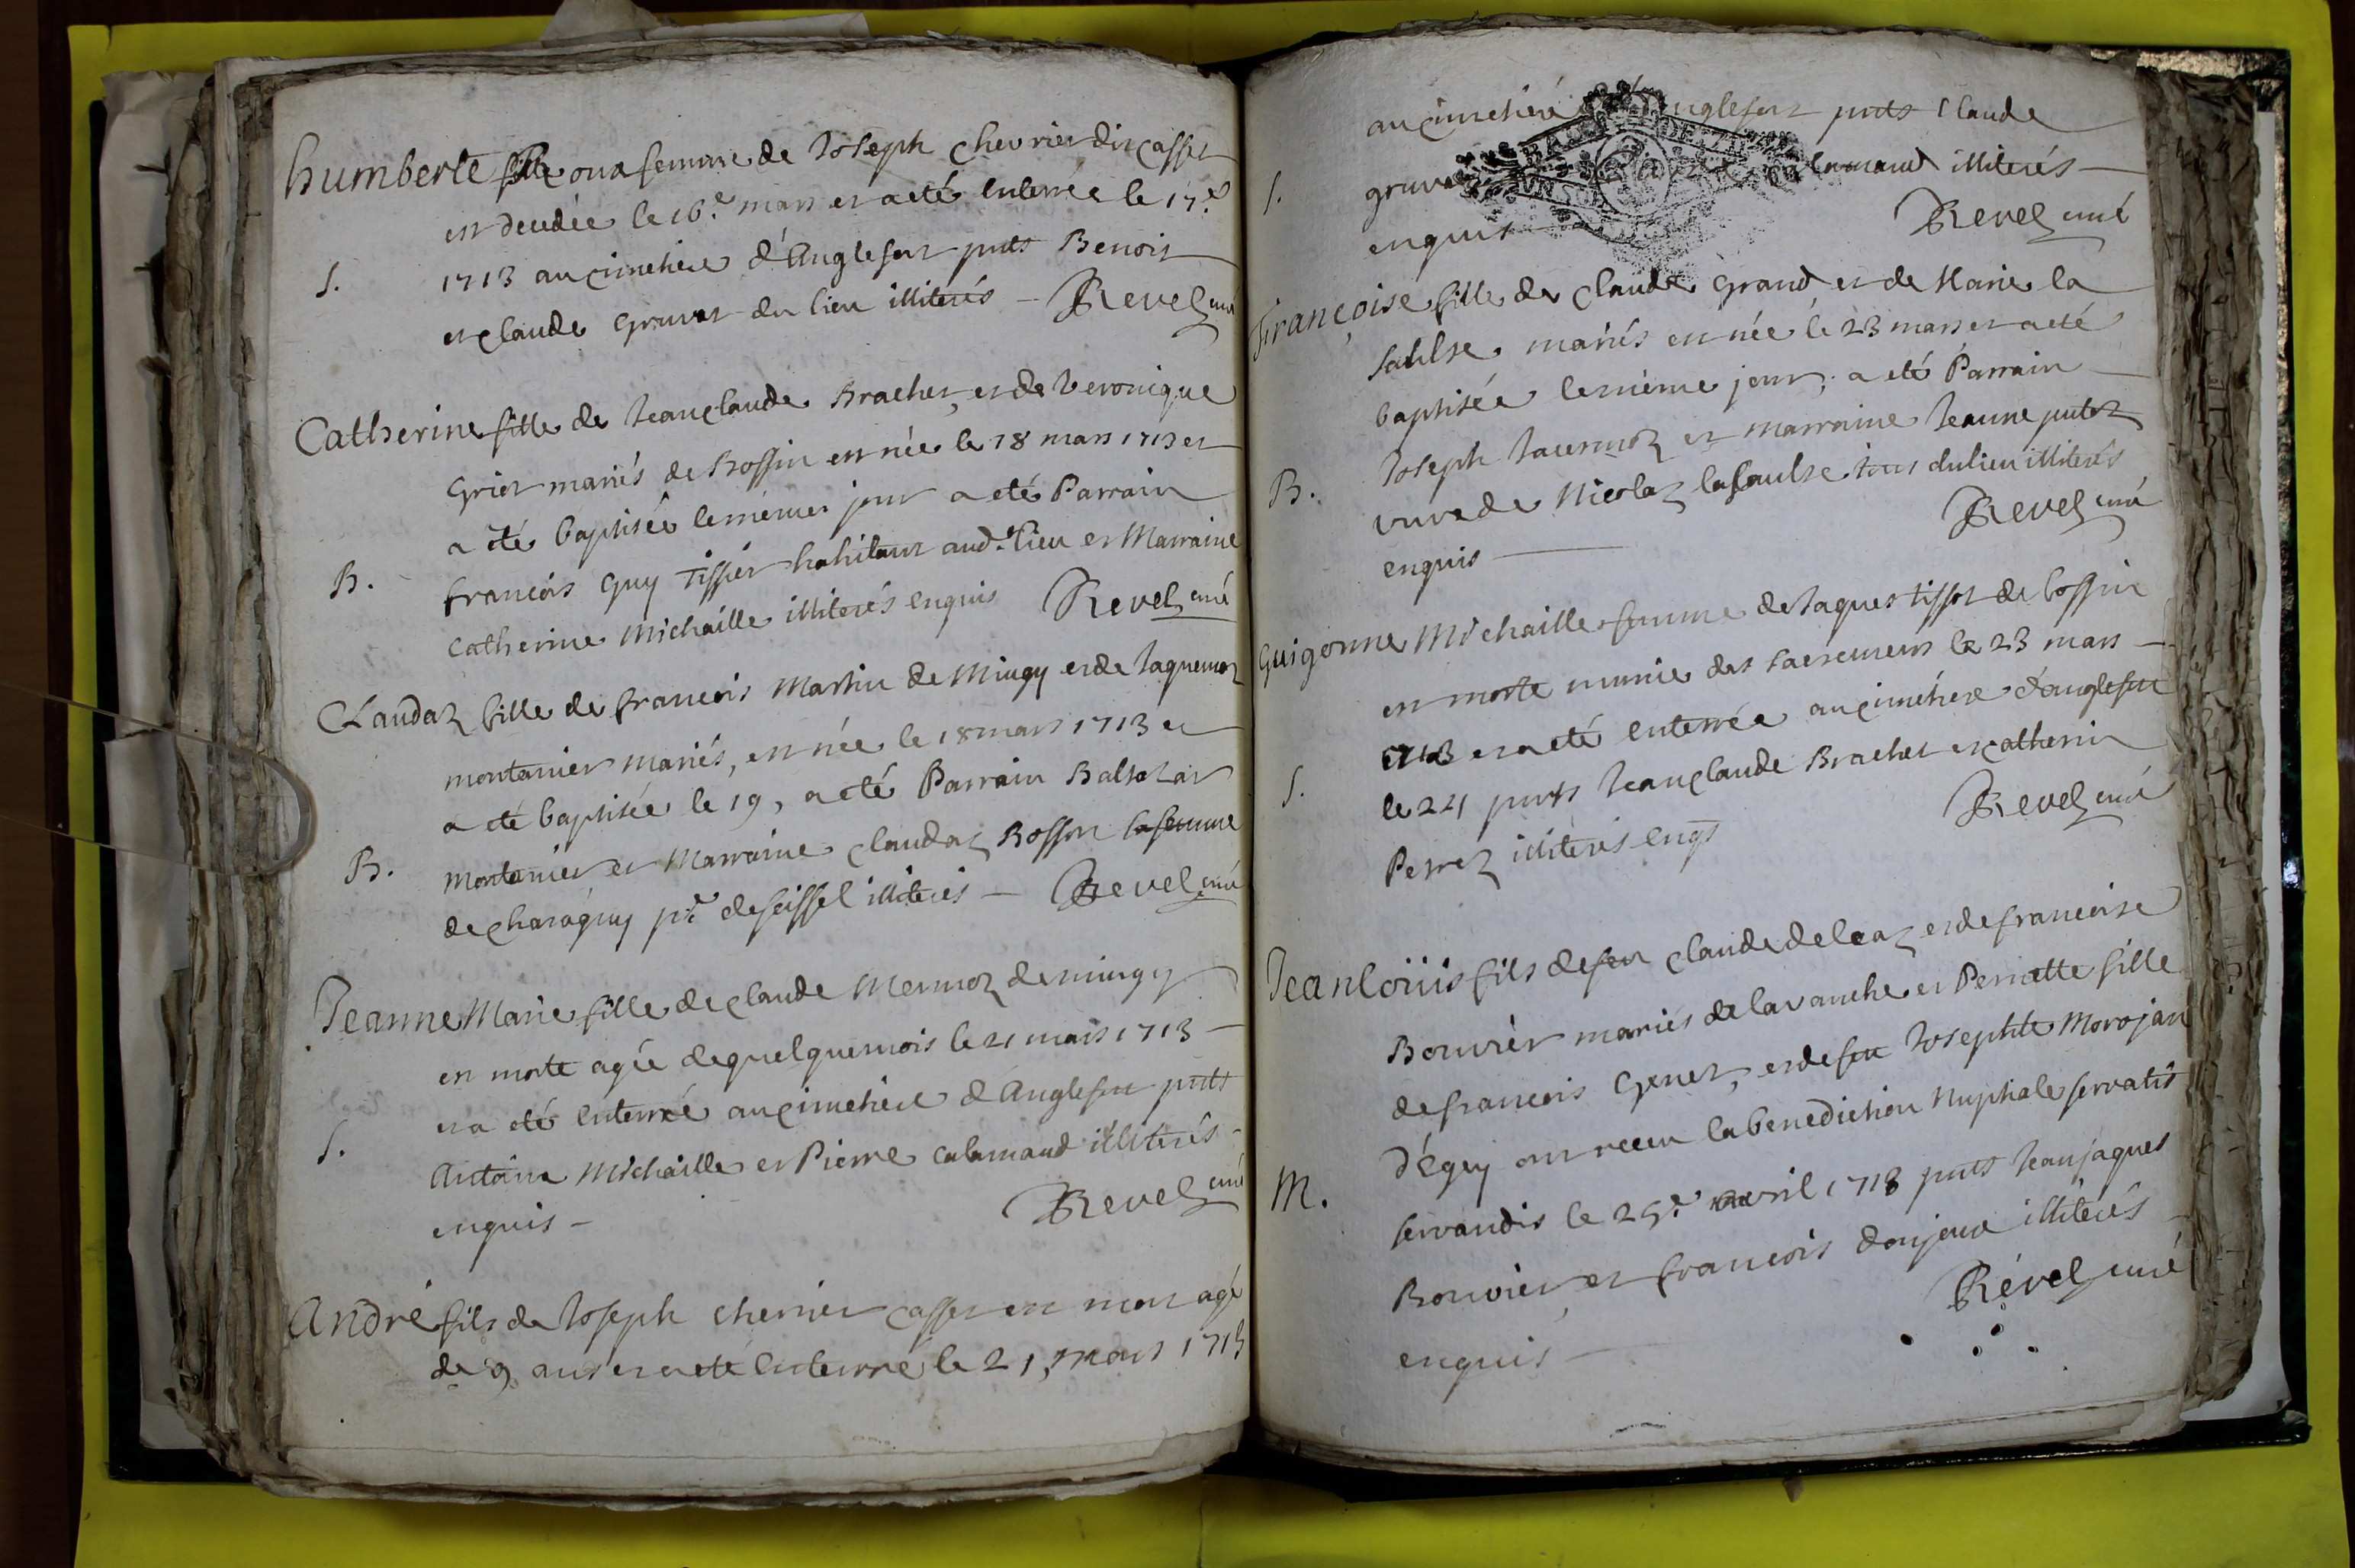 humberte fille oux femme de Joseph chevrier dit casset
est decedée le 16.e mars et a eté enterrée le 17.e
S.
1713 au cimetiere d'Anglefort pnts Benoit
et claude gruvat du lieu illiterés - Revel curé
Catherine fille de Jeanclaude Brachet, et de Veronique
griot mariés de Boffin est née le 18 mars 1713 et
a eté baptisée le même jour a eté Parrain
B.
francois Guy tissier habitant aud. lieu et Marraine
catherine Michaille illiterés enquis Revel curé
Claudaz fille de francois Martin de Mingy et de Jaquemoz
montanier mariés, est née le 18 mars 1713 et
a eté baptisée le 19, a eté Parrain Baltazar
B.
montanier et Marraine claudaz Bosson la femme
de charagny p.e de seissel illiterés - Revel curé
Jeanne Marie fille de claude Mermoz de mingy
est morte agée de quelque mois le 21 mars 1713 -
et a eté enterreé au cimetiere d'Anglefort pnts
S.
Antoine Michaille et Pierre calamand illiterés -
enquis - Revel curé
André fils de Joseph chevrier casset est mort agé
de 9 ans et a eté enterré le 21, mars 1713
au cimetiere Anglefort pnts Claude
S.
gruvat calamand illiterés -
enquis Revel curé
françoise fille de claude grand et de Marie la
saulse mariés est née le 23 mars et a eté
baptisée le même jour, a eté Parrain -
Joseph Tavernoz et marraine Jeanne
B.
vuve de Nicolaz la saulse tous du lieu illiterés
enquis - Revel curé
Guigonne Michaille femme de Jaques tissot de boffin
est morte munie des sacremens le 23 mars -
1713 et a eté enterrée au cimetiere d'anglefort
S.
le 24 pnts Jeanclaude Brachet et catherin
Perrez illiterés enqs Revel curé
Jean loüis fils de feu claude deleaz et de francoise
Bouvier mariés de lavanche et Pernette fille
de francois Genet, et de feu Josephte Morojan
d'éguy ont receu la benediction Nuptiale servatis
M.
servandis le 25.e avril 1713 pnts Jeanjaques
Bouvier et francois donjoux illiterés -
enquis - Revel curé